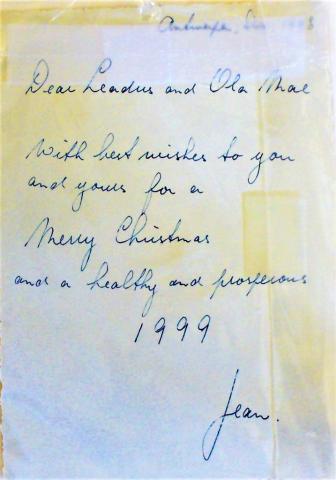 Antwerpen, Dec 1998
Dear Leadus and Ola Mae
With best wishes to you
and yours for a
Merry Christmas
and a healthy and prosperous
1999
Jean.